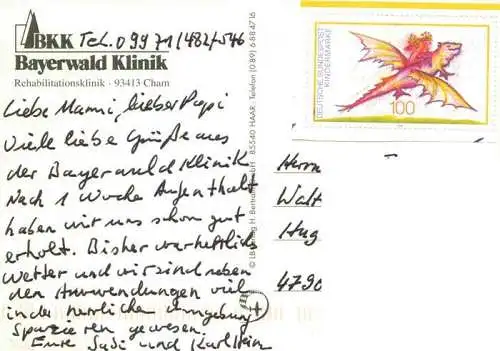 BKK Tel. 09971/482/-546
Bayerwald Klinik
Rehabilitationsklinik · 93413 Cham
Liebe Mammi, lieber Papi
Viele liebe Grüße aus
der Bayerwald Klinik
Nach 1 Woche Aufenthalt
haben wir uns schon gut
erholt. Bisher war herrliches
Wetter und wir sind neben
den Anwendungen viel
in der herrlichen Umgebung
spazieren gewesen.
Eure Susi und Karlheinz
85540 HAAR · Telefon (089) 6884716
DEUTSCHE BUNDESPOST
KINDERMARKE
100
Herrn
Walt
Hug
4790